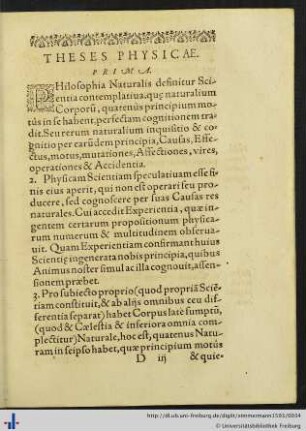 THESES PHYSICAE.
PRIMA.
PHilosophia Naturalis definitur Sci-
entia contemplatiua, quę naturalium
Corporū, quatenùs principium mo-
tûs in se habent, perfectam cognitionem tra-
dit. Seu rerum naturalium inquisitio & co-
gnitio per earūdem principia, Causas, Effe-
ctus, motus, mutationes, Affectiones, vires,
operationes & Accidentia.
2. Physicam Scientiam speculatiuam esse fi-
nis eius aperit, qui non est operari seu pro-
ducere, sed cognoscere per suas Causas res
naturales. Cui accedit Experientia, quæ in-
gentem certarum propositionum physica-
rum numerum & multitudinem obserua-
uit. Quam Experientiam confirmant huius
Scientię ingenerata nobis principia, quibus
Animus noster simul ac illa cognouit, assen-
sionem præbet.
3. Pro subiecto proprio (quod propriā Sciē-
tiam constituit, & ab alijs omnibus ceu dif-
ferentia separat) habet Corpus latè sumptū,
(quod & Cælestia & inferiora omnia com-
plectitur) Naturale, hoc est, quatenus Natu-
ram in seipso habet, quæ principium motûs
D iij & quie-
http://dl.ub.uni-freiburg.de/diglit/zimmermann1581/0034
© Universitätsbibliothek Freiburg